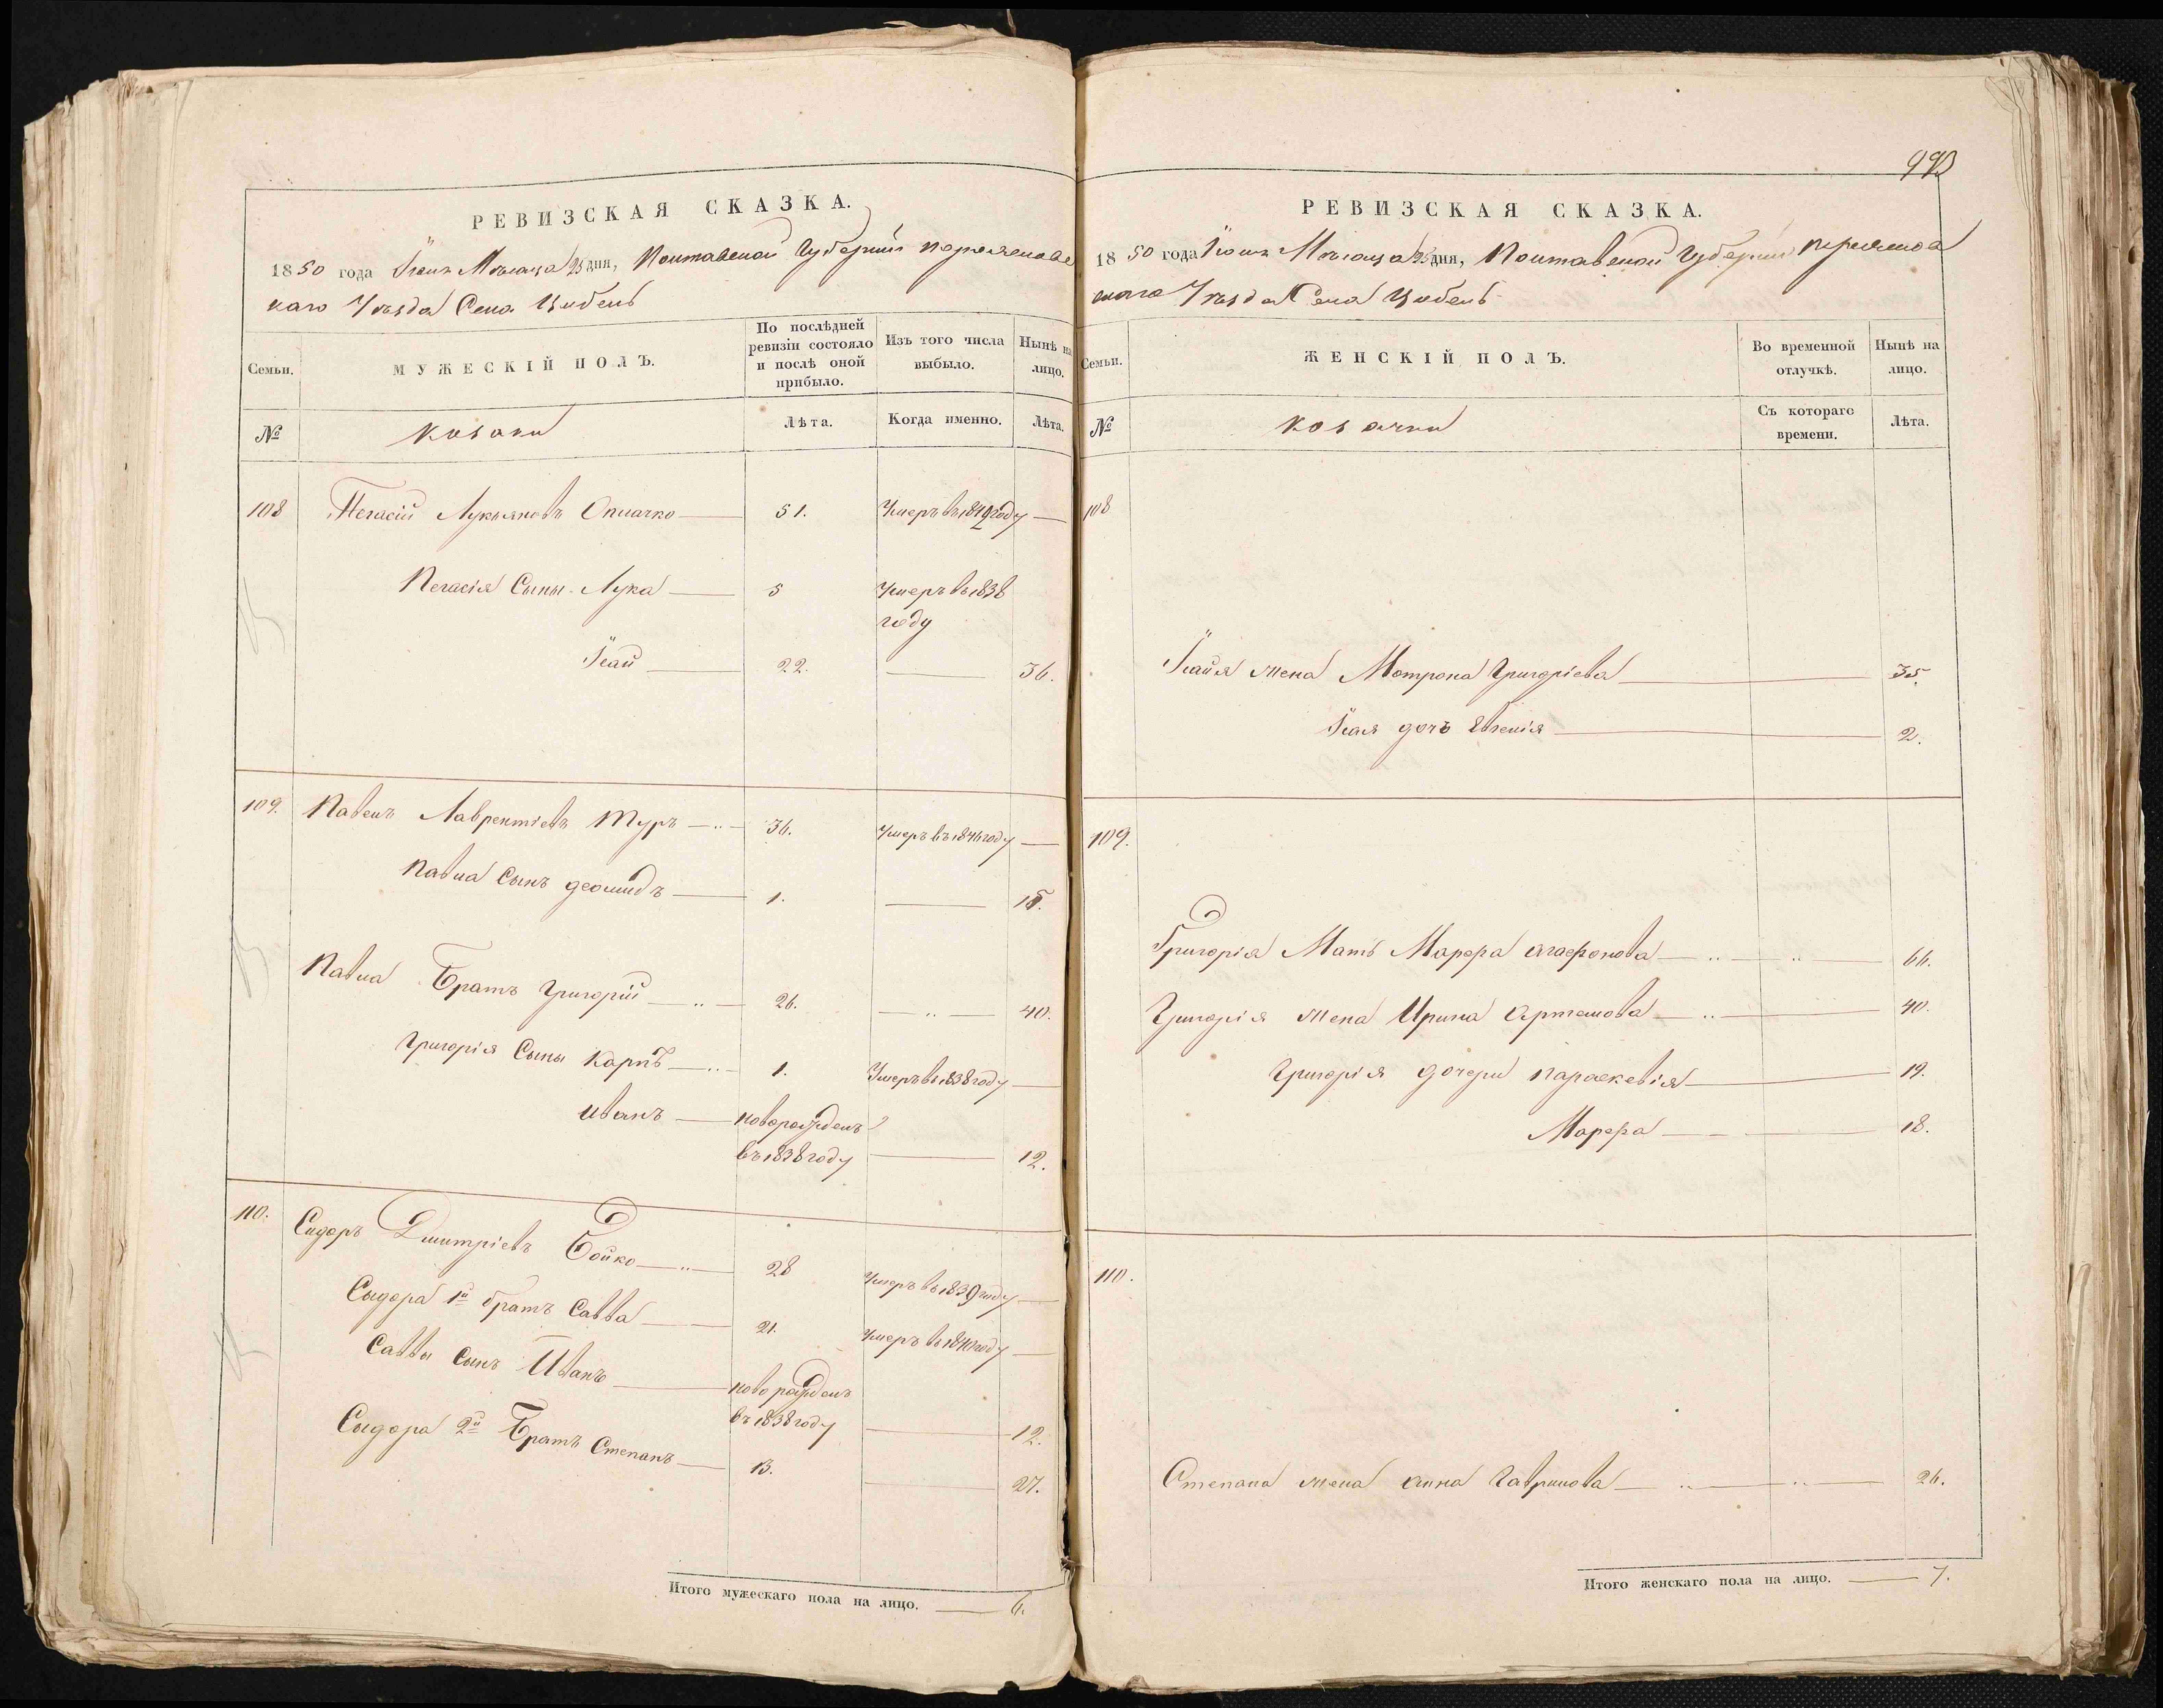 РЕВИЗСКАЯ СКАЗКА.
1850 года Іюня Мѣсяца 25 дня, Полтавской Губерніи Переяславс
каго Уѣзда Села Цибель
Семьи.
МУЖЕСКІЙ ПОЛЪ.
По послѣдней ревизіи состояло и послѣ оной прибыло.
Изъ того числа выбыло.
Нынѣ на лицо.
№
козаки
Лѣта.
Когда именно.
Лѣта.
108 Пегасій Лукьяновъ 51. Умеръ въ 1849 году —
Пегасія Сыны Лука — 5 Умеръ въ 1838
году
Ісай — 22. — 36.
109. Павелъ Лаврентіевъ Туръ — 36. Умеръ въ 1846 году —
Павла Сынъ Деомидъ — 1. — 15.
Павла Братъ Григорій — 26. — 40.
Григорія Сыны Карпъ — 1. Умеръ въ 1838 году —
Иванъ — новорожденъ
въ 1838 году — 12.
110. Сидоръ Дмитріевъ Бойко — 28 Умеръ въ 1839 году —
Сидора 1й братъ Савва — 21. Умеръ въ году —
Саввы Сынъ Иванъ — новорожденъ
въ 1838 году — 12.
Сидора 2й Братъ Степанъ — 13. — 27.
Итого мужескаго пола на лицо. — 6.
993
РЕВИЗСКАЯ СКАЗКА.
1850 года Іюня Мѣсяца 25 дня, Полтавской Губерніи Переяслав
скаго Уѣзда Села Цибель
Семьи.
ЖЕНСКІЙ ПОЛЪ.
Во временной отлучкѣ.
Нынѣ на лицо.
№
козачки
Съ котораго времени.
Лѣта.
108
Ісайя жена Мотрона Григоріева — 35.
Ісая дочь Евгенія — 2.
109.
Григорія Мать Марфа Агафонова — 66.
Григорія жена Ирина Артемова — 40.
Григорія дочери Параскевія — 19.
Марфа — 18.
110.
Степана жена Анна Гаврилова — 26.
Итого женскаго пола на лицо. — 7.